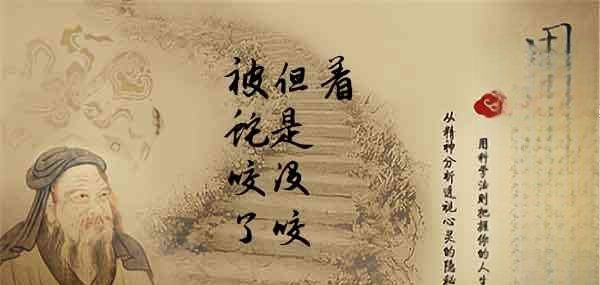 被蛇咬了
但是没咬
着
用科学法则把握你的人生
从精神分析透视心灵的隐秘